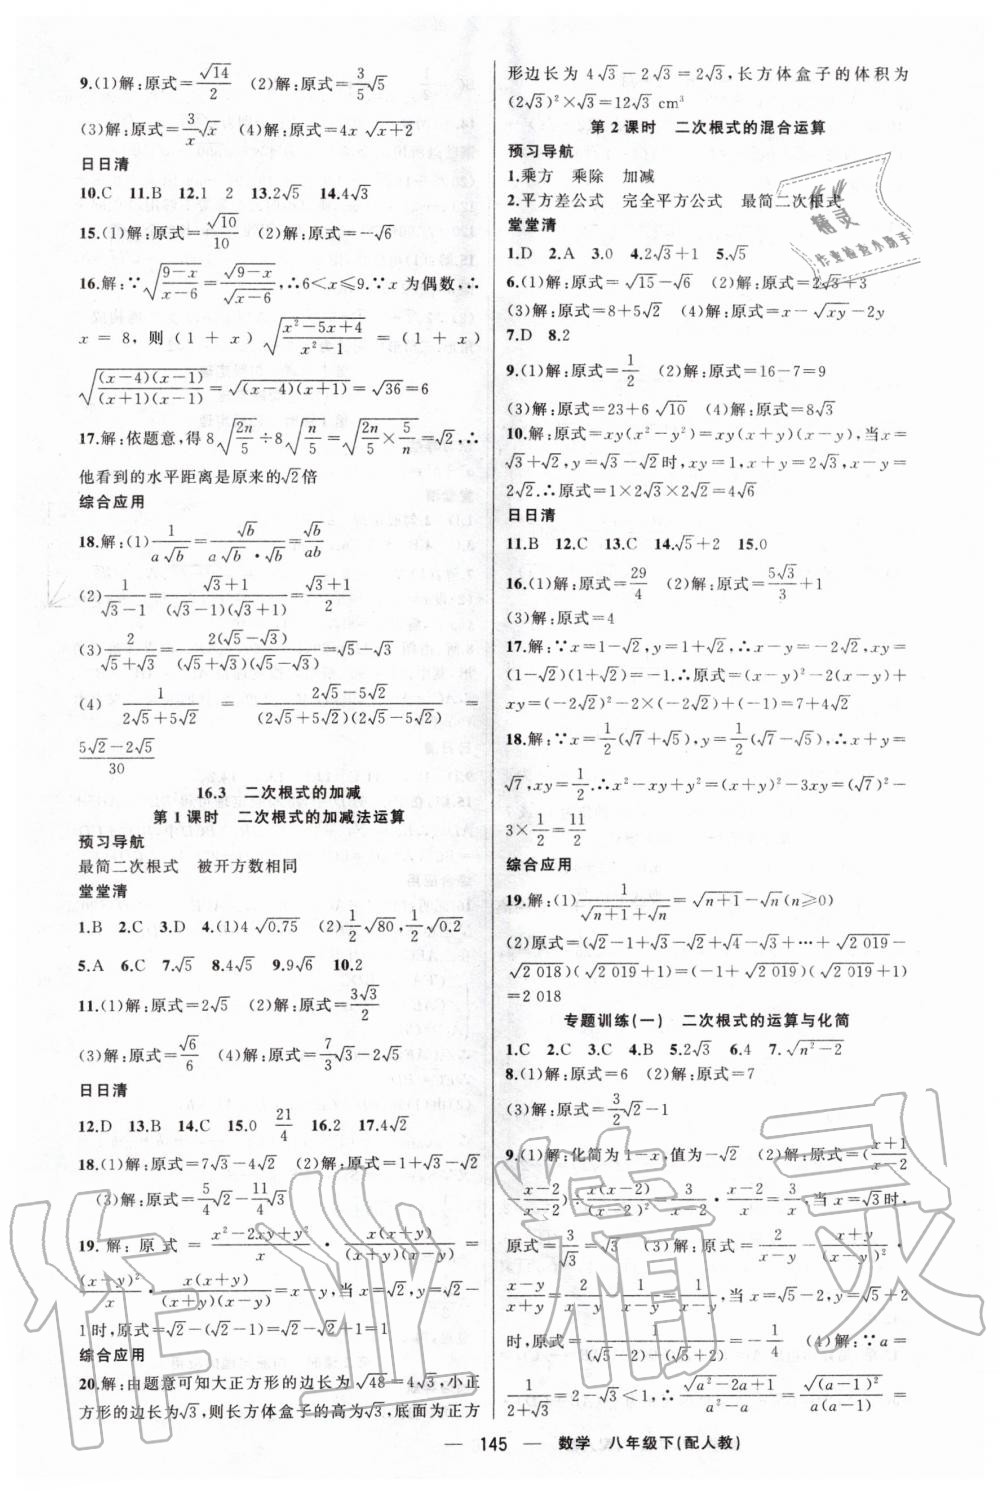 9.(1)解:原式=√14/2 (2)解:原式=3/5√5
(3)解:原式=3/x√x (4)解:原式=4x√(x+2)
日日清
10.C 11.B 12.1 2 13.2√5 14.4√3
15.(1)解:原式=√10/10 (2)解:原式=-√6
16.解:∵√((9-x)/(x-6))=√(9-x)/√(x-6),∴6<x≤9.∵x为偶数,∴
x=8,则(1+x)√((x²-5x+4)/(x²-1))=(1+x)
√((x-4)(x-1)/((x+1)(x-1)))=√((x-4)(x+1))=√36=6
17.解:依题意,得8√(2n/5)÷8√(n/5)=√(2n/5×5/n)=√2,∴
他看到的水平距离是原来的√2倍
综合应用
18.解:(1)1/(a√b)=√b/(a√b·√b)=√b/(ab)
(2)1/(√3-1)=(√3+1)/((√3-1)(√3+1))=(√3+1)/2
(3)2/(√5+√3)=2(√5-√3)/((√5+√3)(√5-√3))=√5-√3
(4)1/(2√5+5√2)=(2√5-5√2)/((2√5+5√2)(2√5-5√2))=
(5√2-2√5)/30
16.3 二次根式的加减
第1课时 二次根式的加减法运算
预习导航
最简二次根式 被开方数相同
堂堂清
1.B 2.C 3.D 4.(1)4√0.75 (2)1/2√80,1/2√0.2
5.A 6.C 7.√5 8.4√5 9.9√6 10.2
11.(1)解:原式=2√5 (2)解:原式=3√3/2
(3)解:原式=√6/6 (4)解:原式=7/3√3-2√5
日日清
12.D 13.B 14.C 15.0 21/4 16.2 17.4√2
18.(1)解:原式=7√3-4√2 (2)解:原式=1+√3-√2
(3)解:原式=5/4√2-11/4√3
19.解:原式=(x²-2xy+y²)/x·x(x+y)/((x+y)(x-y))=
(x-y)²/x·x(x+y)/((x+y)(x-y))=x-y,当x=√2,y=√2-
1时,原式=√2-(√2-1)=√2-√2+1=1
综合应用
20.解:由题意可知大正方形的边长为√48=4√3,小正
方形的边长为√3,则长方体盒子的高为√3,底面为正方
形边长为4√3-2√3=2√3,长方体盒子的体积为
(2√3)²×√3=12√3 cm³
第2课时 二次根式的混合运算
预习导航
1.乘方 乘除 加减
2.平方差公式 完全平方公式 最简二次根式
堂堂清
1.D 2.A 3.0 4.2√3+1 5.√5
6.(1)解:原式=√15-√6 (2)解:原式=2√3+3
(3)解:原式=8+5√2 (4)解:原式=x-√xy-2y
7.D 8.2
9.(1)解:原式=1/2 (2)解:原式=16-7=9
(3)解:原式=23+6√10 (4)解:原式=8√3
10.解:原式=xy(x²-y²)=xy(x+y)(x-y),当x=
√3+√2,y=√3-√2时,xy=1,x+y=2√3,x-y=
2√2.∴原式=1×2√3×2√2=4√6
日日清
11.B 12.C 13.C 14.√5+2 15.0
16.(1)解:原式=29/4 (2)解:原式=5√3/3+1
(3)解:原式=4
17.解:∵x=1-√2,y=1+√2,∴x-y=-2√2,xy=
(1-√2)(1+√2)=-1.∴原式=(x-y)²-2(x-y)+
xy=(-2√2)²-2×(-2√2)+(-1)=7+4√2
18.解:∵x=1/2(√7+√5),y=1/2(√7-√5),∴x+y=
√7,xy=1/2.∴x²-xy+y²=(x+y)²-3xy=(√7)²-
3×1/2=11/2
综合应用
19.解:(1)1/(√(n+1)+√n)=√(n+1)-√n(n≥0)
(2)原式=(√2-1+√3-√2+√4-√3+…+√2 019-
√2 018)(√2 019+1)=(-1+√2 019)(√2 019+1)
=2 018
专题训练(一) 二次根式的运算与化简
1.C 2.C 3.C 4.B 5.2√3 6.4 7.√(n²-2)
8.(1)解:原式=6 (2)解:原式=7
(3)解:原式=3/2√2-1
9.(1)解:化简为1-x,值为-√2 (2)解:原式=((x+1)/(x-2)
-(x-2)/(x-2))÷x(x-2)/(x-2)²=3/(x-2)·(x-2)/x=3/x,当x=√3时,
原式=3/√3=√3 (3)解:原式=2/(x-y)·(x+y)/(x+y)²·
(x-y)/2=1/(x+y),当x=√5-2,y=√5+2
时,原式=1/((√5-2)+(√5+2)) (4)解:∵a=
1/(2+√3)=2-√3<1,∴√(a²-2a+1)/(a²-a)=√((a-1)²)/(a²-a)=
— 145 — 数学 八年级下(配人教)
精灵
作业检查小助手
作业精灵